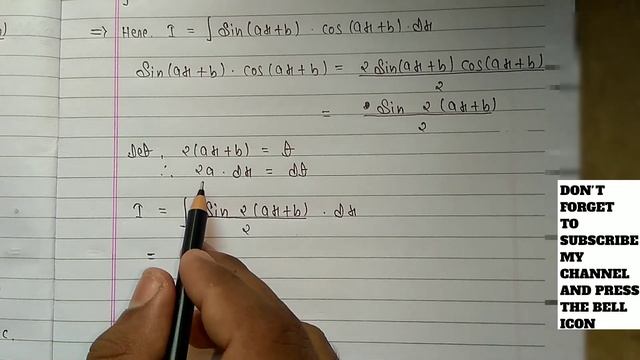 => Here. I = ∫ Sin(ax+b) · cos(ax+b) · dx
Sin(ax+b) · cos(ax+b) = 2 Sin(ax+b) cos(ax+b) / 2
= Sin 2(ax+b) / 2
Let, 2(ax+b) = t
∴ 2a · dx = dt
I = ∫ Sin 2(ax+b) / 2 · dx
=
c.
DON'T
FORGET
TO
SUBSCRIBE
MY
CHANNEL
AND PRESS
THE BELL
ICON